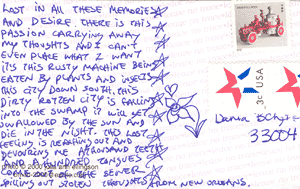 LOST IN ALL THESE MEMORIES
AND DESIRE. THERE IS THIS
PASSION CARRYING AWAY
MY THOUGHTS AND I CAN'T
EVEN PLACE WHAT I WANT
IT'S THIS RUSTY MACHINE BEING
EATEN BY PLANTS AND INSECTS
THIS CITY DOWN SOUTH, THIS
DIRTY ROTTEN CITY IS FALLING
INTO THE SWAMP IT WILL GET
SWALLOWED BY THE SUN AND
DIE IN THE NIGHT. THIS LOST
FEELING IS REACHING OUT AND
DEVOURING ME A THOUSAND TEETH
AND A HUNDRED TONGUES
COME OUT OF THE SEWER
SPILLING OUT STOLEN THOUGHTS FROM NEW ORLEANS.
USA
Dama
33004